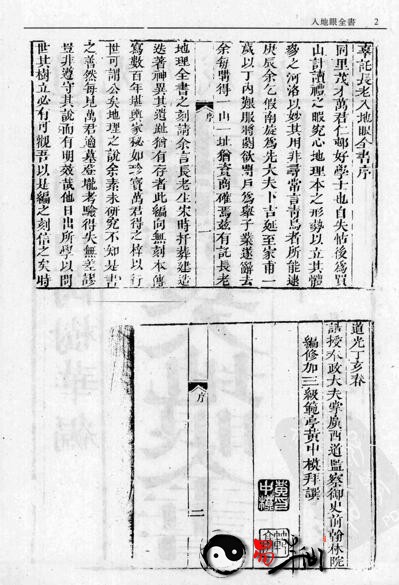 入地眼全書 2
辜託長老入地眼全書序
同里茂才萬君仁邨好學士也自失怙後爲買
山計讀禮之暇究心地理本之形勢以立其體
參之河洛以妙其用非尋常言青烏者所能逮
庚辰余乞假南旋爲先大夫卜吉延至家市一
歲以丁內艱服將闋欲閉戶爲舉子業遂辭去
余每購得一山一址猶資商確焉兹有託長老
序
一
地理全書之刻請余言長老生宋時扞葬建造
迭著神異其遺趾猶有存者此編向無刻本傳
寫數百年堪輿家秘如珍寶萬君得之梓以行
世可謂公矣地理之說余素未研究不知是書
之善然每見萬君適墓登壠考驗得失無差謬
豈非遵守其說而有明效哉他日出所學以問
世其樹立必有可觀吾以是編之刻信之矣時
道光丁亥春
誥授奉政大夫掌廣西道監察御史前翰林院
編修加三級範亭黃中模拜譔
序
二